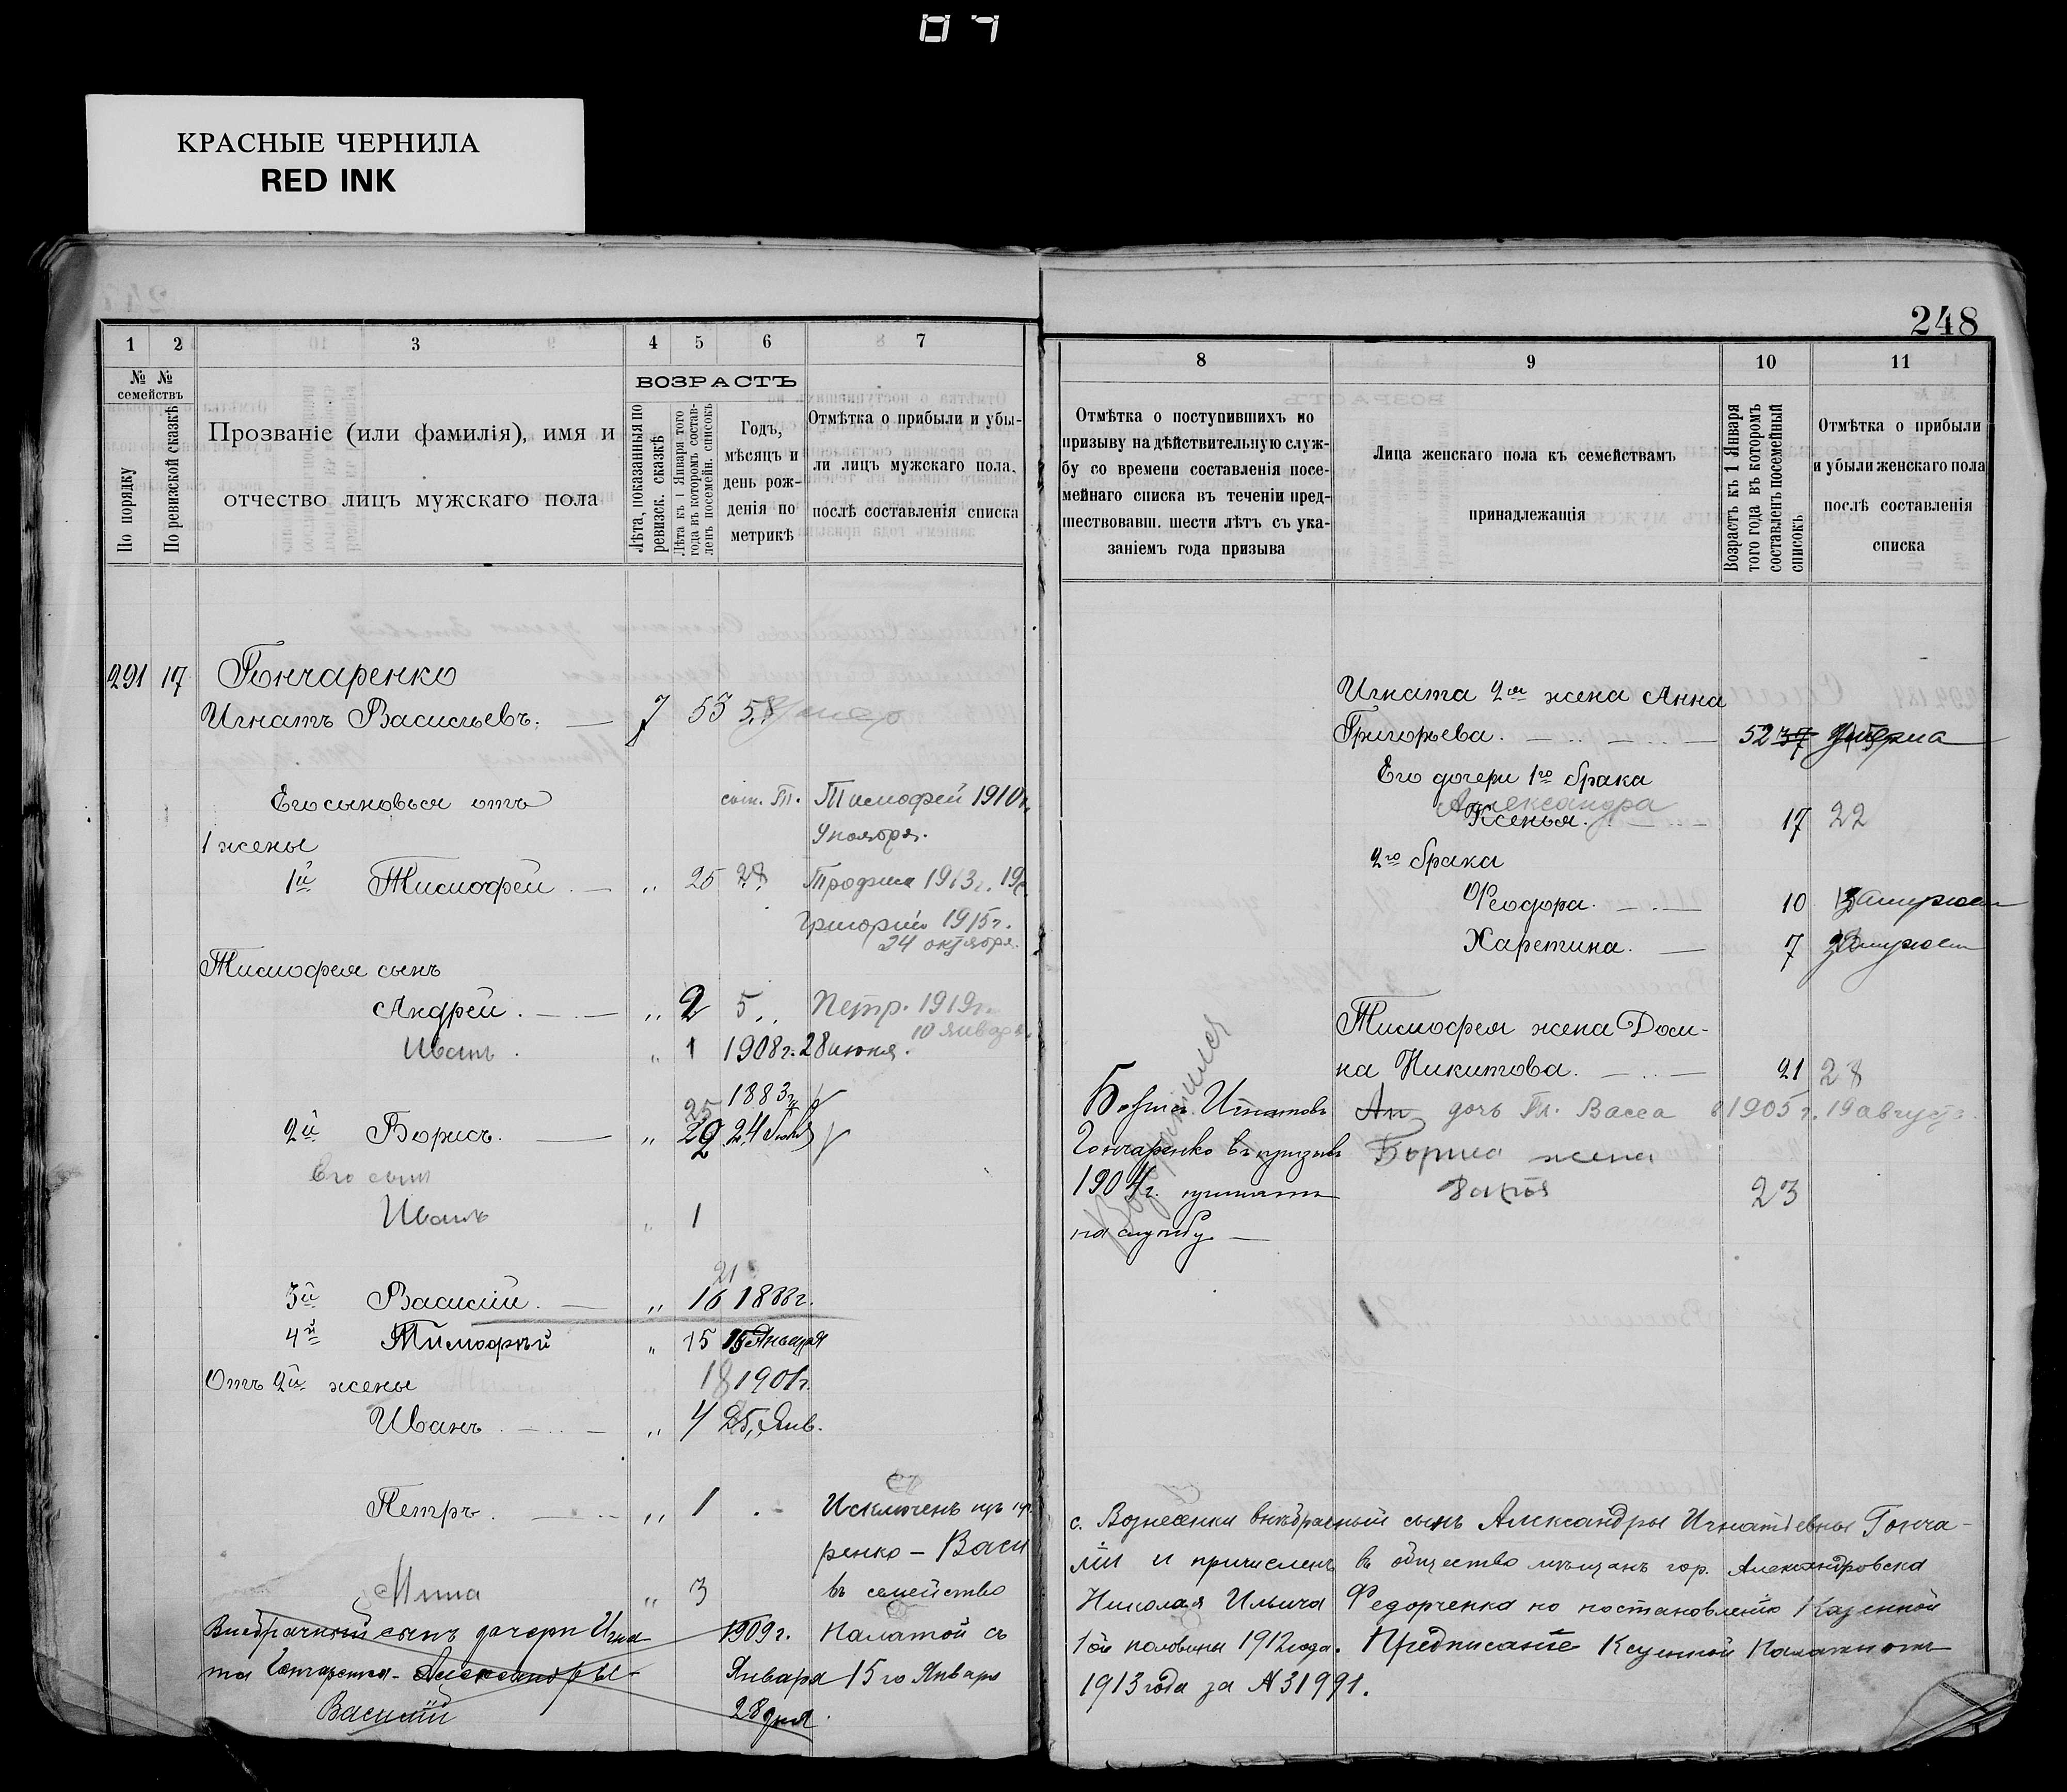 КРАСНЫЕ ЧЕРНИЛА
RED INK
248
1 2 3 4 5 6 7
№ № семействъ
По порядку
По ревизской сказкѣ
Прозваніе (или фамилія), имя и
отчество лицъ мужскаго пола
ВОЗРАСТЪ
Лѣта, показанныя по
ревизск. сказкѣ
Лѣта къ 1 Января того
года въ которомъ состав-
ленъ посемейн. списокъ
Годъ,
мѣсяцъ и
день рож-
денія по
метрикѣ
Отмѣтка о прибыли и убы-
ли лицъ мужскаго пола,
послѣ составленія списка
291 17 Гончаренко
Игнатъ Васильевъ. 7 53 58 умер
Его сыновья отъ
1 жены
сын. Т. Тимофей 1910 г.
9 ноября.
1й Тимофей 25 28 Трофим 1913 г.
Григорий 1915 г.
24 октября.
Тимофея сынъ
Андрей. 2 5 Петр. 1919 г.
10 января.
Иванъ. 1 1908 г. 28 июня.
1883 г.
25
2й Борисъ. 29 24 Іюля
Его сын
Иванъ 1
21
3й Василій. 16 1888 г.
4й Тимофѣй 15 15 Января
Отъ 2й жены 18 1901 г.
Иванъ 4 25 Янв.
Петръ. 1
Мина 3
Внебрачный сынъ дочери Игна
та Гончаренка - Александры
Василій
1909 г.
Января
28 дня.
Исключенъ изъ
8 9 10 11
Отмѣтка о поступившихъ по
призыву на дѣйствительную служ-
бу со времени составленія посе-
мейнаго списка въ теченіи пред-
шествовавш. шести лѣтъ съ ука-
заніемъ года призыва
Лица женскаго пола къ семействамъ
принадлежащія
Возрастъ къ 1 Января
того года въ которомъ
составленъ посемейный
списокъ
Отмѣтка о прибыли
и убыли женскаго пола
послѣ составленія
списка
Игната 2ая жена Анна
Григорьева. 52 37 Умерла
Его дочери 1го брака
Александра
Ксенья. 17 22
2го брака
Феодора. 10 Замужем
Харетина. 7 Замужем
Тимофея жена Дом-
на Никитова. 21 28
дочь Васса 1905 г. 19 августа
Бориса жена
23
Борис Игнатовъ
Гончаренко въ призывъ
1904 г. принятъ
на службу.
Возвратился
с. Вознесенки внѣбрачный сынъ Александры Игнатіевны Гонча-
ренко - Васи
лій и причисленъ въ общество мѣщанъ гор. Александровска
въ семейство
Николая Ильича Федорченка по постановленію Казенной
Палатой съ
1ой половины 1912 года. Предписаніе Казенной Палаты отъ
15го Января
1913 года за №31991.